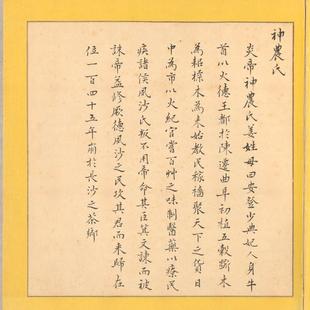 神農氏
炎帝神農氏姜姓母曰安登少典妃人身牛
首以火德王都於陳遷曲阜初植五穀斷木
為耜揉木為耒始教民稼穡聚天下之貨日
中為市以火紀官嘗百艸之味制醫藥以療民
疾諸侯夙沙氏叛不用帝命其臣箕文諫而被
誅帝益修厥德夙沙之民攻其君而来歸在
位一百四十五年崩於長沙之茶鄉